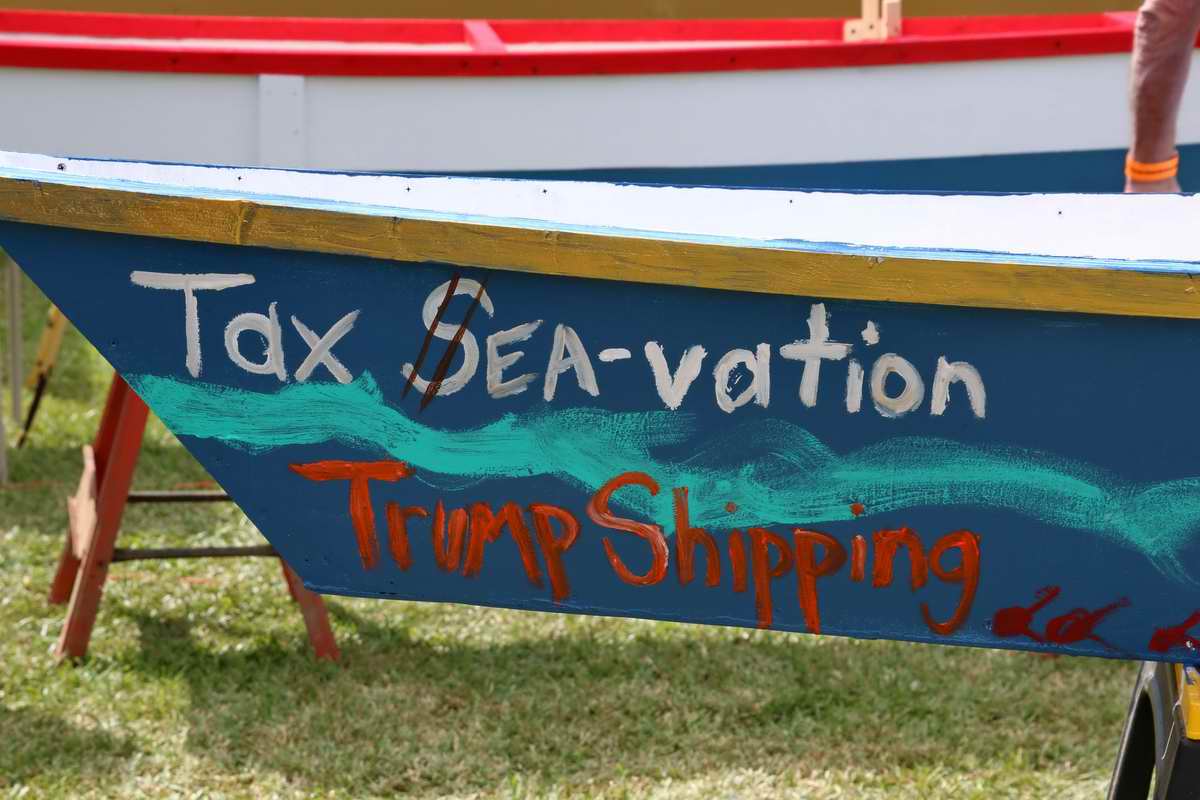 Tax SEA-vation
Trump Shipping